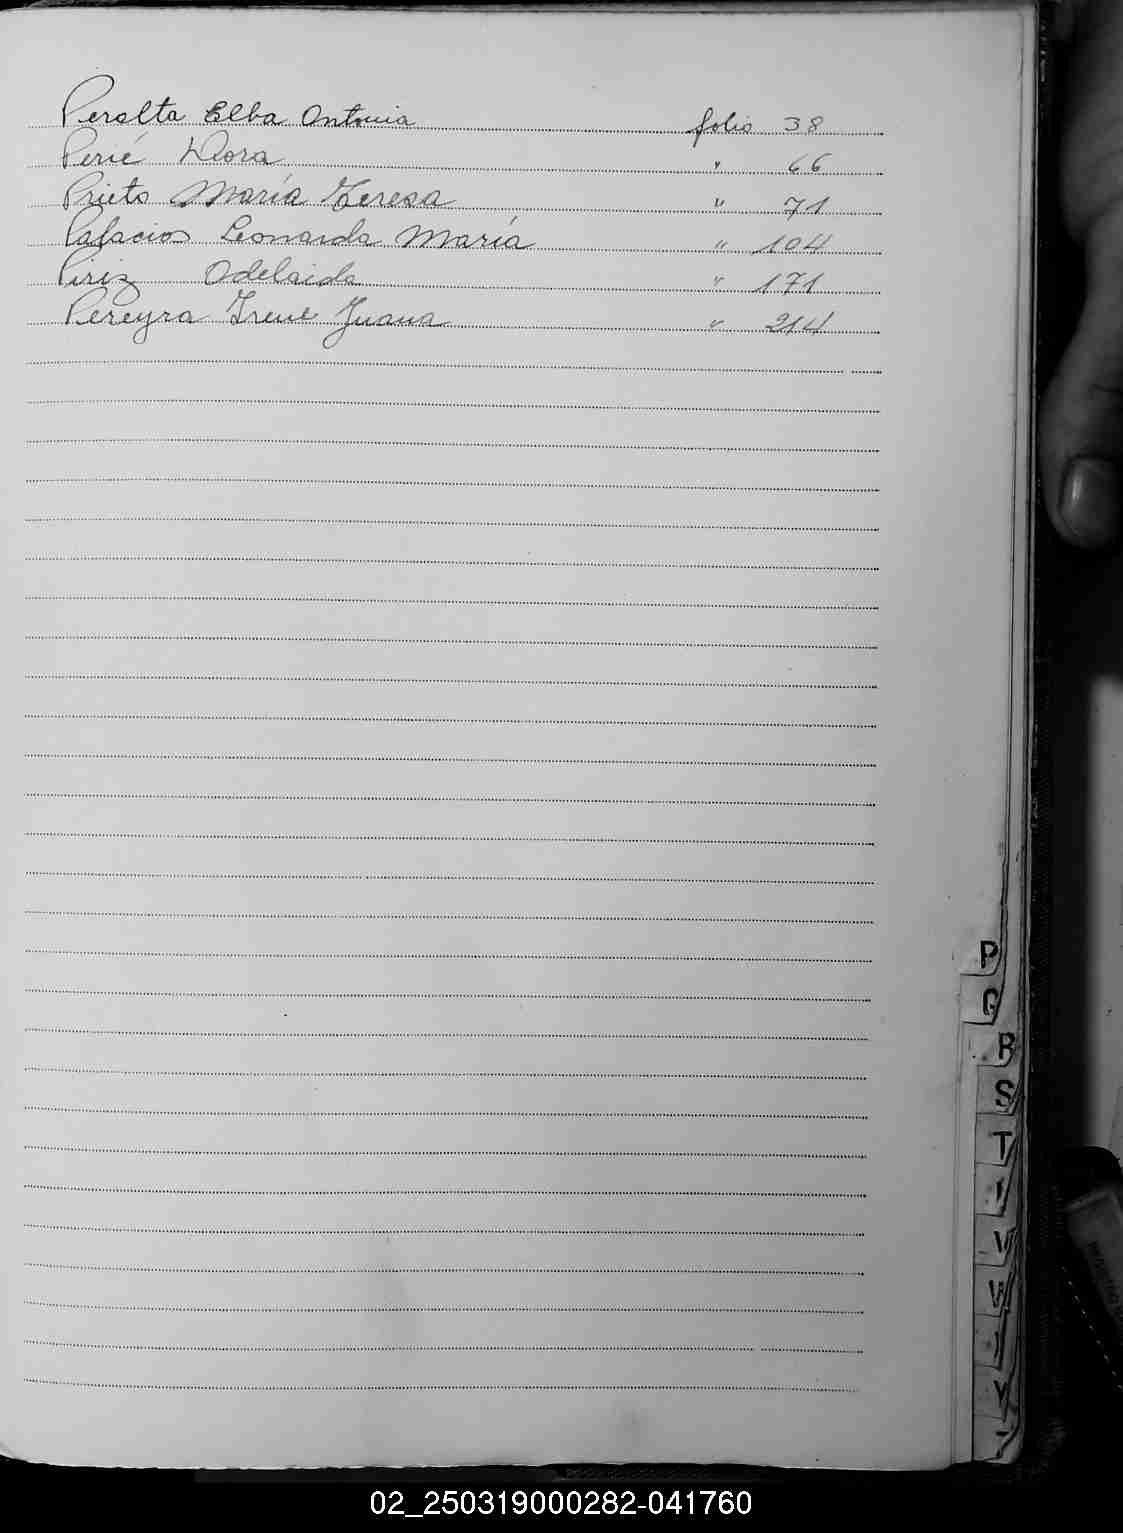 Peralta Elba Antonia folio 38
Perié Dora " 66
Prieto María Teresa " 71
Palacios Leonarda María " 104
Piriz Adelaida " 171
Pereyra Irene Juana " 214
P
Q
R
S
T
V
W
Y
02_250319000282-041760